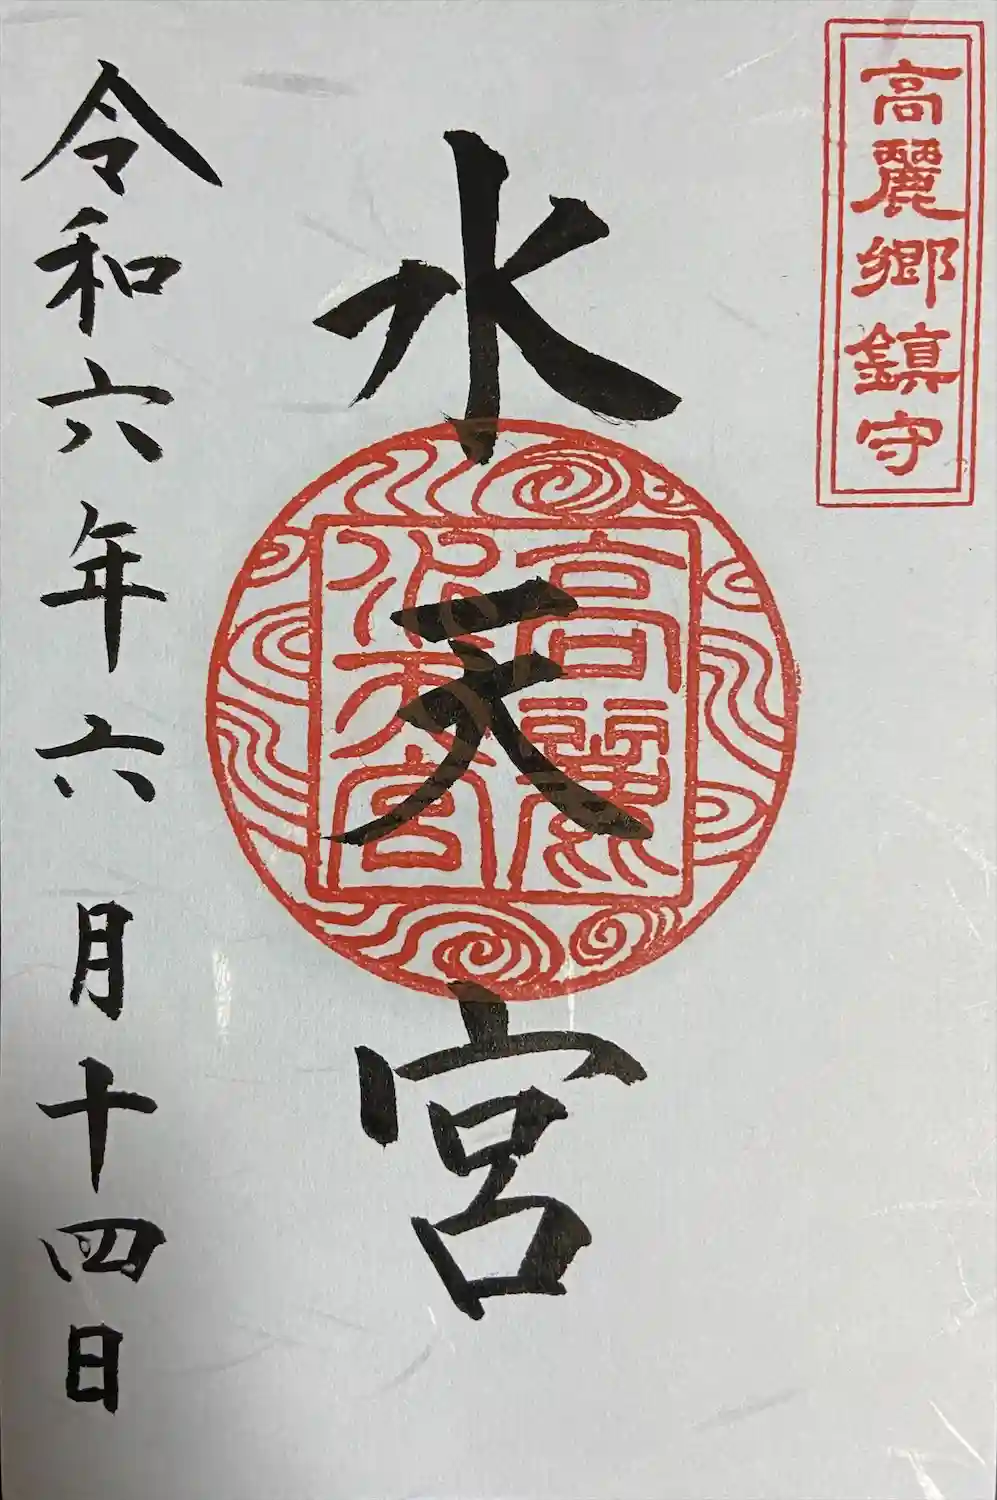 高麗郷鎮守
水天宮
高麗
水天宮
令和六年六月十四日